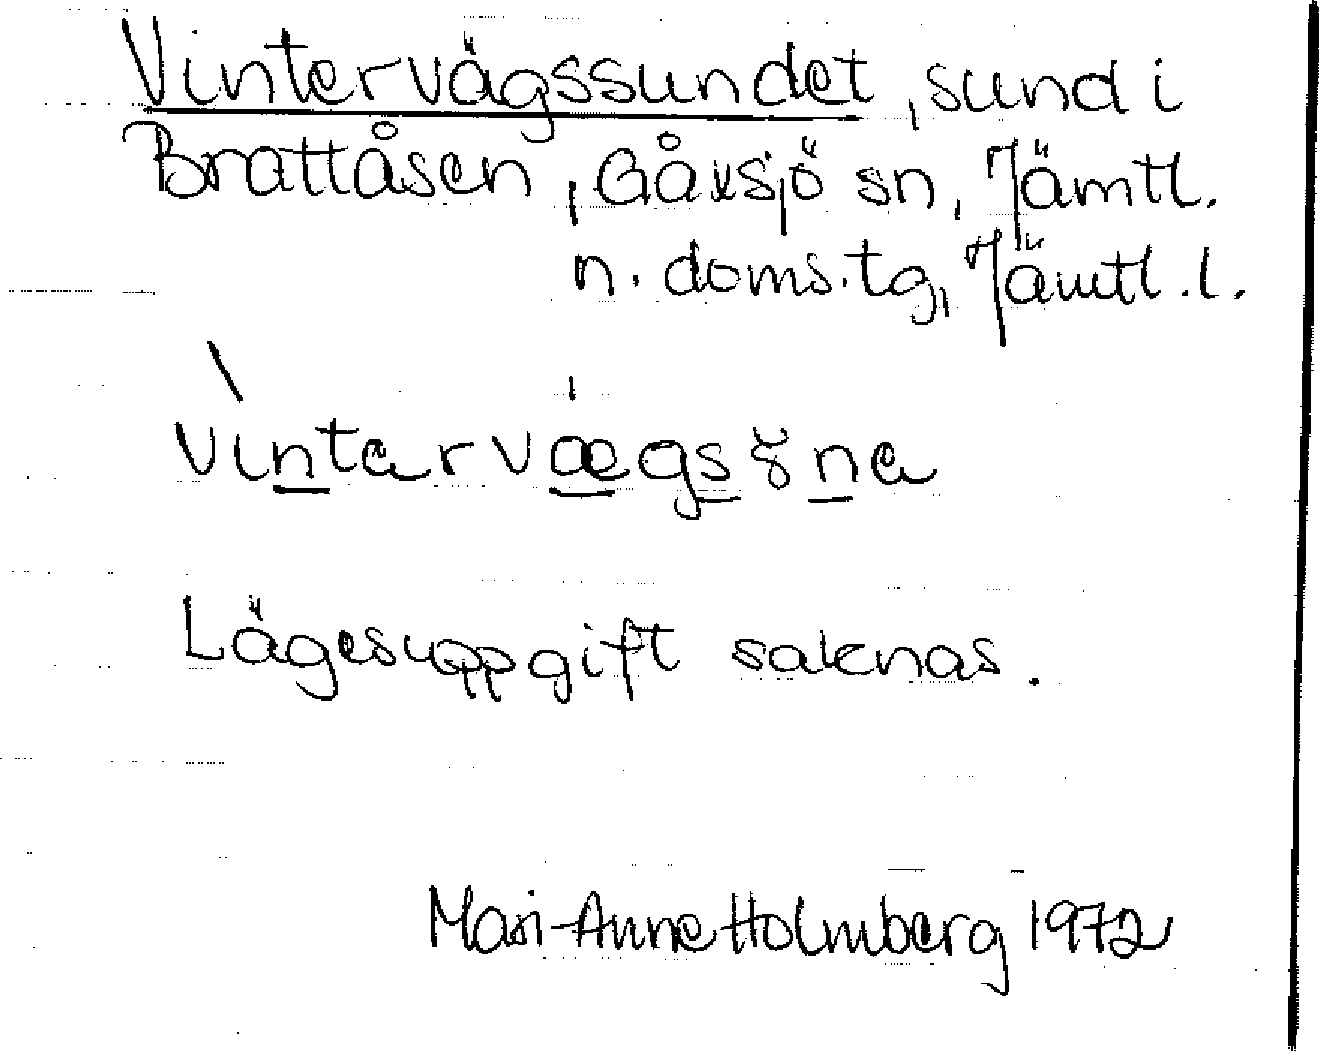 Vintervägssundet, sund i
Brattåsen, Gåxsjö sn, Jämtl.
n. doms.tg, Jämtl.l.
Lägesuppgift saknas.
Mari-Anne Holmberg 1972